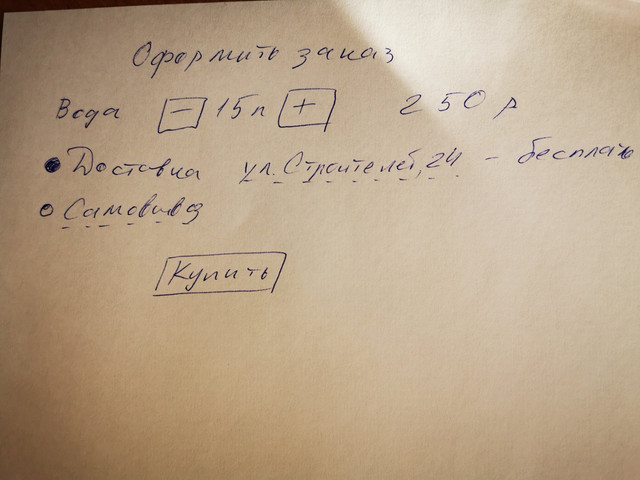 Оформить заказ
Вода - 15л + 250 р
Доставка ул. Строителей, 24 - бесплатно
Самовывоз
Купить